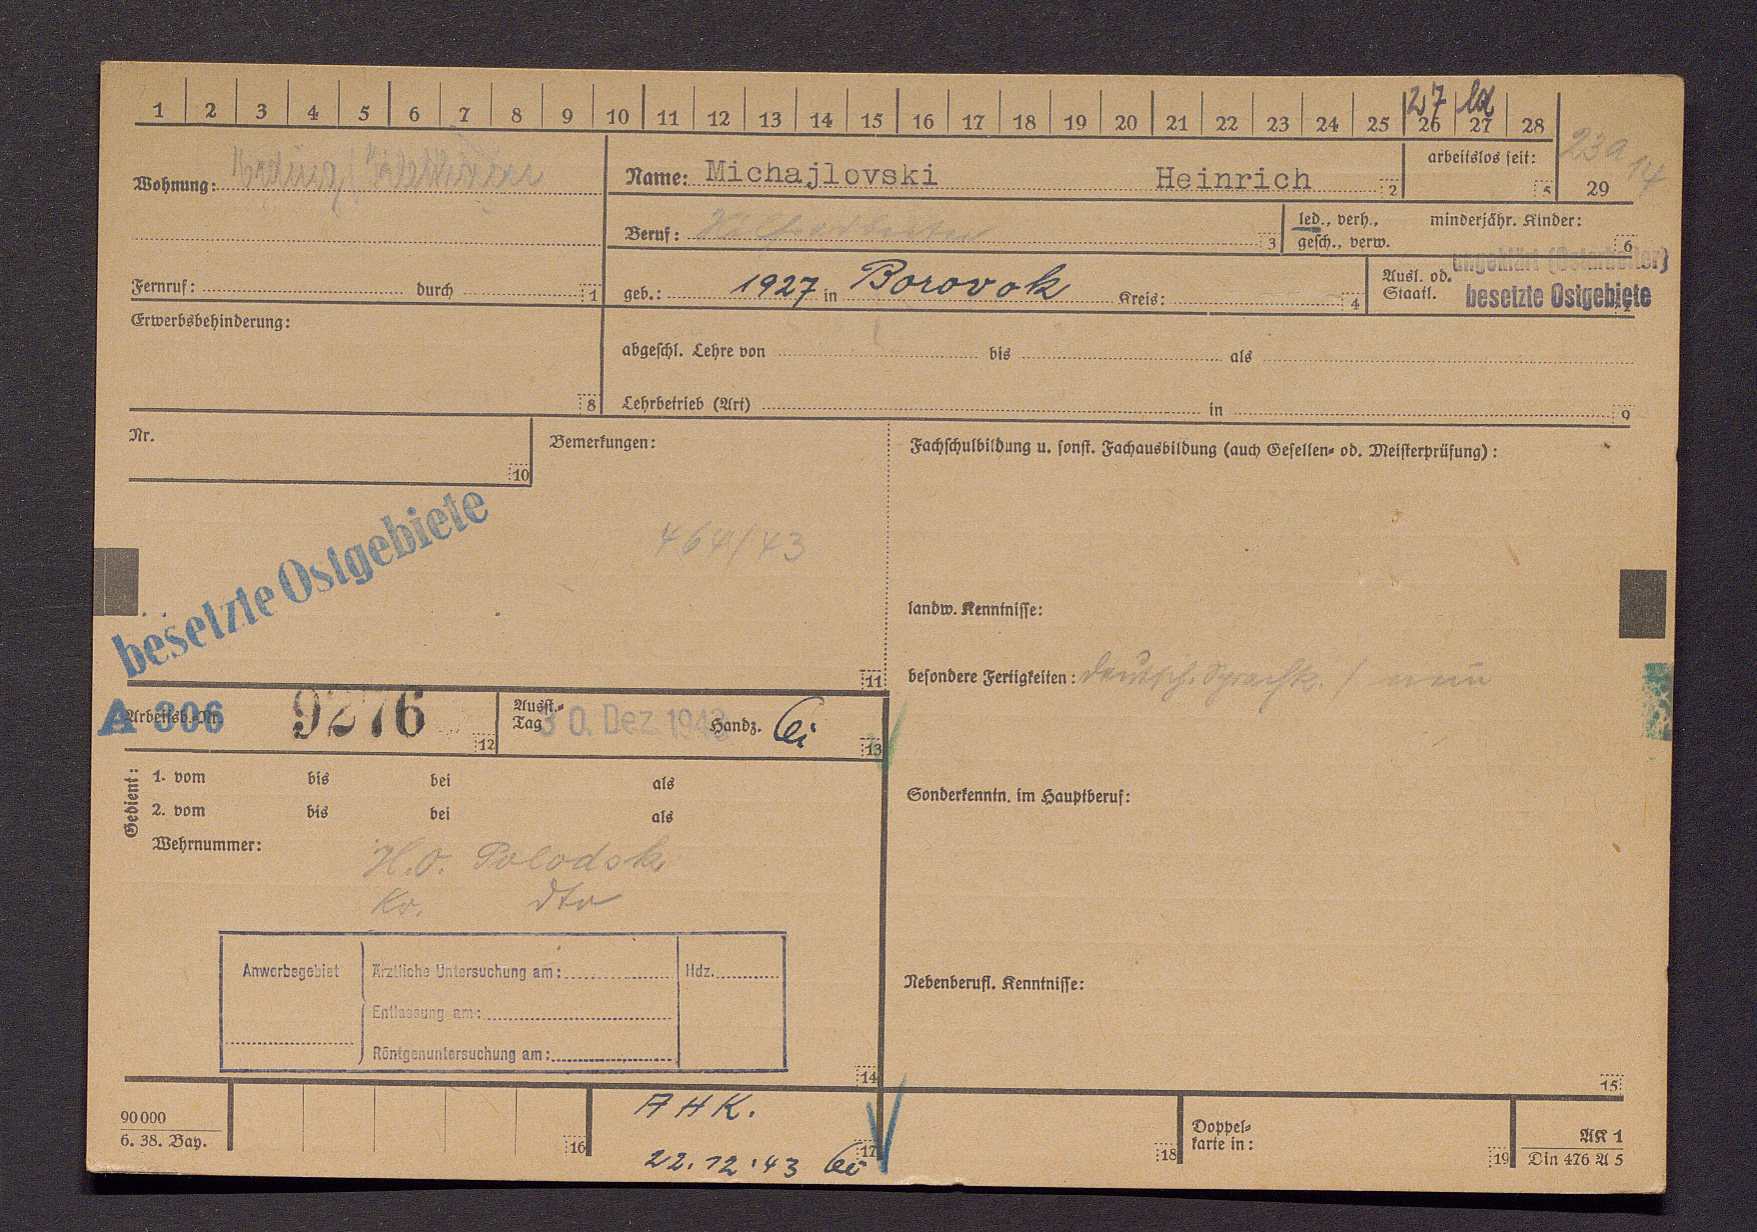 1 2 3 4 5 6 7 8 9 10 11 12 13 14 15 16 17 18 19 20 21 22 23 24 25 26 27 28
27
23a
14
Wohnung:
Name: Michajlovski Heinrich 2
arbeitslos seit: 5
29
Beruf: Hilfsarbeiter 3
led., verh., gesch., verw.
minderjähr. Kinder: 6
Fernruf: durch 1
geb.: 1927 in Borovok Kreis: 4
Ausl. od. Staatl.
ungeklärt (Ostarbeiter)
besetzte Ostgebiete
Erwerbsbehinderung:
8
abgeschl. Lehre von bis als
Lehrbetrieb (Art) in 9
Nr.
10
Bemerkungen:
464/43
11
besetzte Ostgebiete
Fachschulbildung u. sonst. Fachausbildung (auch Gesellen- od. Meisterprüfung):
landw. Kenntnisse:
besondere Fertigkeiten: deutsch. Sprachk. / nein
A 306
Arbeitsb.-Nr. 9276 12
Ausst.-Tag 30. Dez. 1943 Handz. 13
Gedient:
1. vom bis bei als
2. vom bis bei als
Wehrnummer:
H.O. Polodsk
Kr. dto
Sonderkenntn. im Hauptberuf:
Nebenberufl. Kenntnisse:
Anwerbegebiet
Ärztliche Untersuchung am: Hdz.
Entlassung am:
Röntgenuntersuchung am:
14
15
90 000
6. 38. Bay.
16
A H K.
22.12.43
17
18
Doppel-
karte in:
19
AK 1
Din 476 A 5